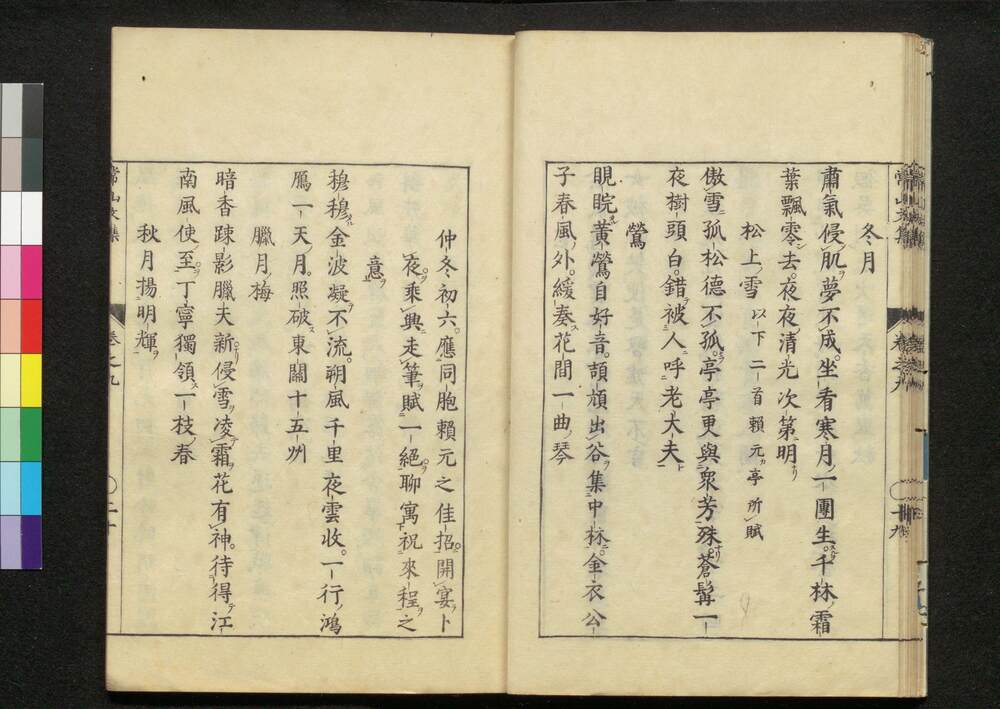 冬月
肅氣侵肌夢不成坐看寒月一團生千林霜
葉飄零去夜夜清光次第明
松上雪 以下二首賴元亭所賦
傲雪孤松德不孤亭亭更與眾芳殊蒼髯一
夜樹頭白錯被人呼老大夫
鶯
睍睆黃鶯自好音頡頏出谷集中林金衣公
子春風外緩奏花間一曲琴
常山文集
卷之九
十九
仲冬初六應同胞賴元之佳招開宴卜
夜乘興走筆賦一絕聊寓祝來程之
意
穆穆金波凝不流朔風千里夜雲收一行鴻
鴈一天月照破東關十五州
臘月梅
暗香踈影臘夫新侵雪凌霜花有神待得江
南風使至丁寧獨領一枝春
秋月揚明輝
常山文集
卷之九
二十